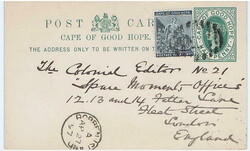 POST CARD
CAPE OF GOOD HOPE
THE ADDRESS ONLY TO BE WRITTEN ON T
The Colonial Editor No 21
"Spare Moments Office"
12.13 and 14 Fetter Lane
Fleet Street
London
England
A
AP 27
97